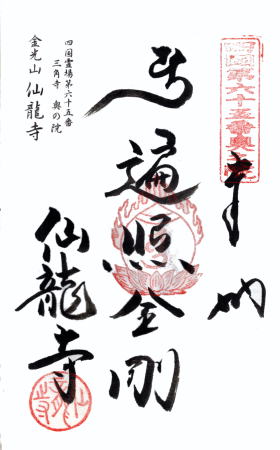 四国第六十五番奥之院
奉納
遍照金剛
仙龍寺
四国霊場第六十五番
三角寺 奥の院
金光山 仙龍寺